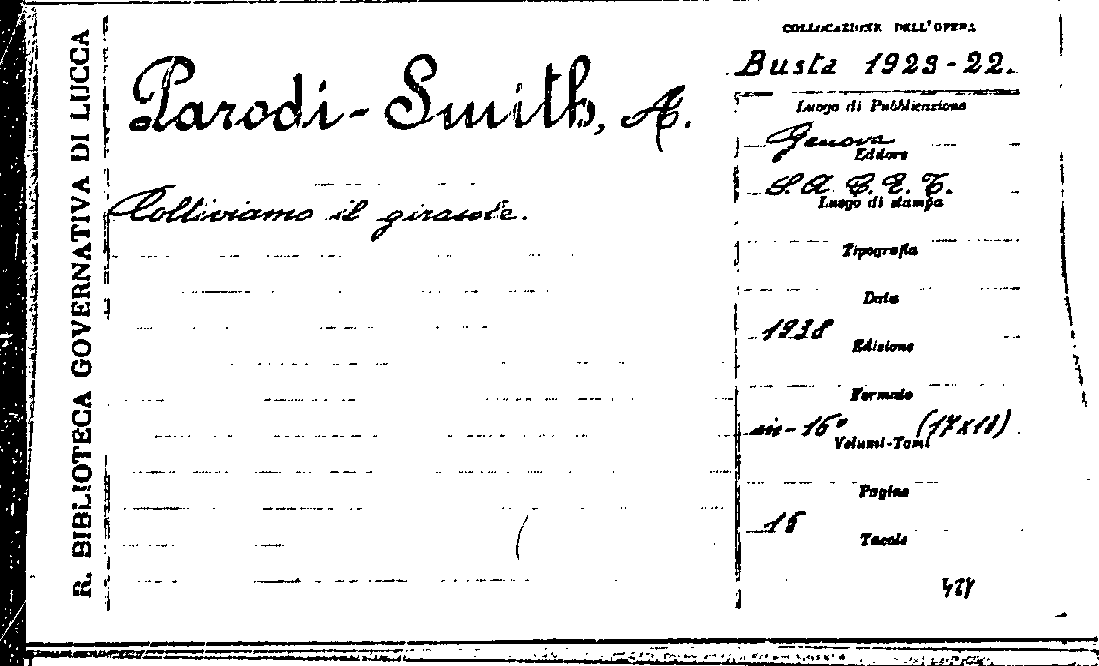 R. BIBLIOTECA GOVERNATIVA DI LUCCA
Parodi-Smith, A.
Coltiviamo il girasole.
COLLOCAZIONE DELL'OPERA
Busta 1923-22.
Luogo di Pubblicazione
Genova
Editore
S.A.G.E.T.
Luogo di stampa
Tipografia
Data
1938
Edizione
Formato
in-16° (17x18)
Volumi-Tomi
Pagine
16
Tavole